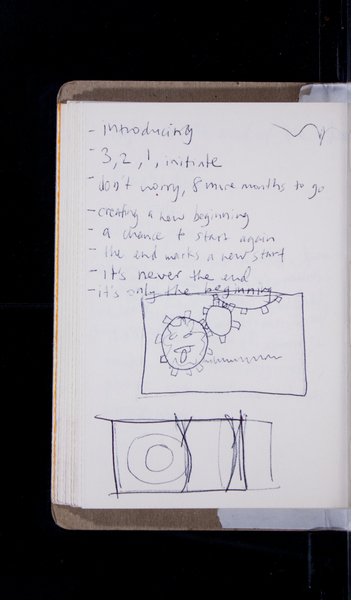 - introducing
- 3, 2, 1, initiate
- don't worry, 8 more months to go
- creating a new beginning
- a chance to start again
- the end marks a new start
- it's never the end
- it's only the beginning